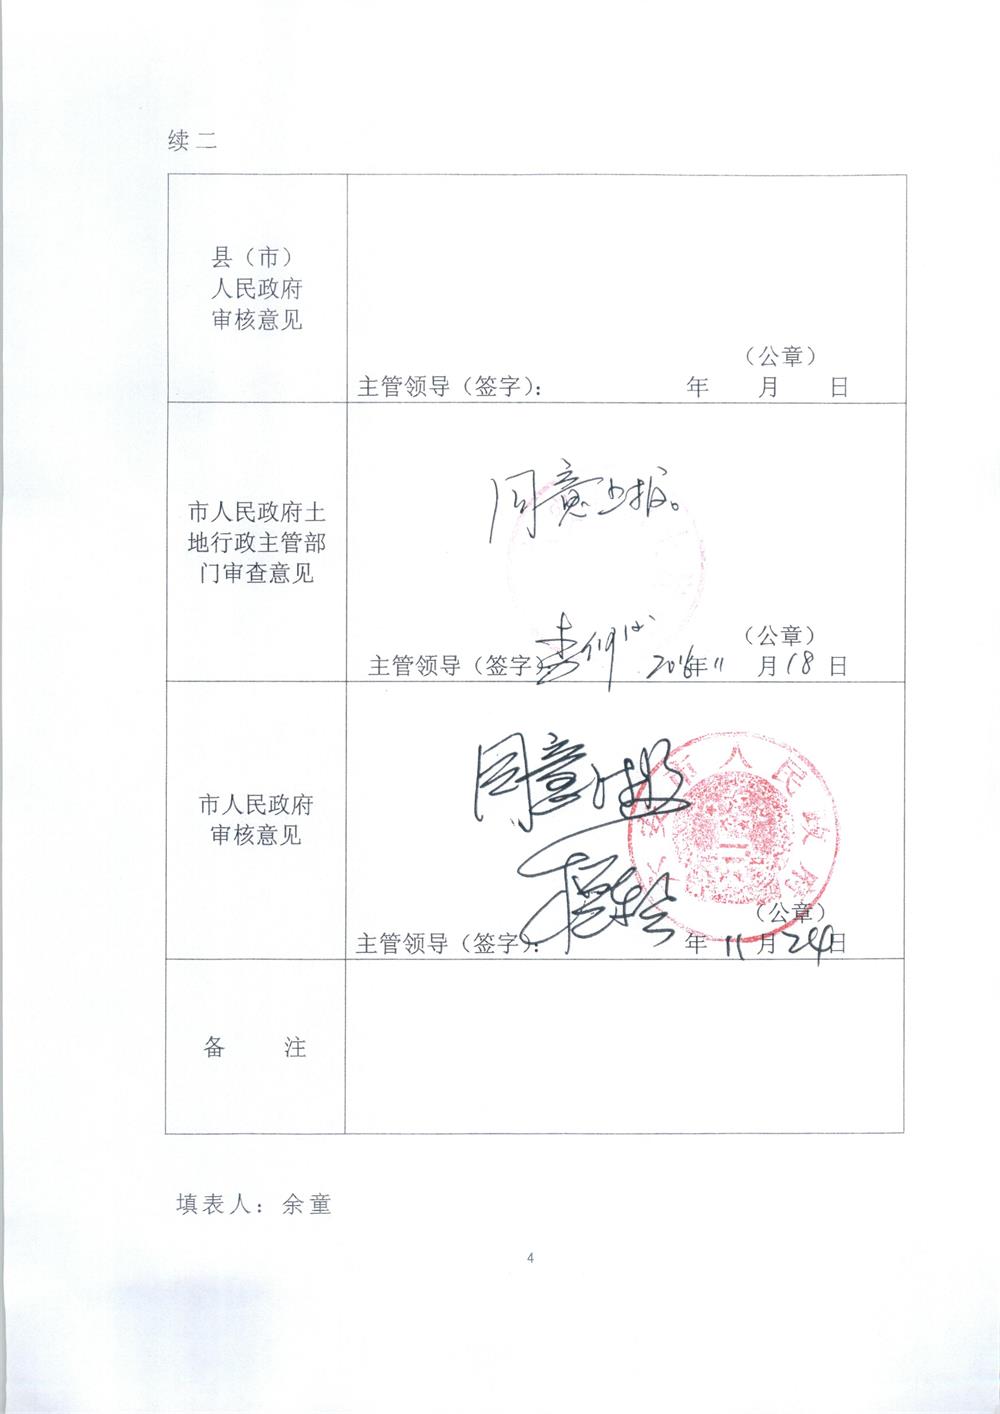 续二
县（市）
人民政府
审核意见
（公章）
主管领导（签字）： 年 月 日
市人民政府土
地行政主管部
门审查意见
同意上报。
（公章）
主管领导（签字） 2016年11月18日
市人民政府
审核意见
同意上报
市人民政府
（公章）
主管领导（签字）： 年11月24日
备 注
填表人：余童
4